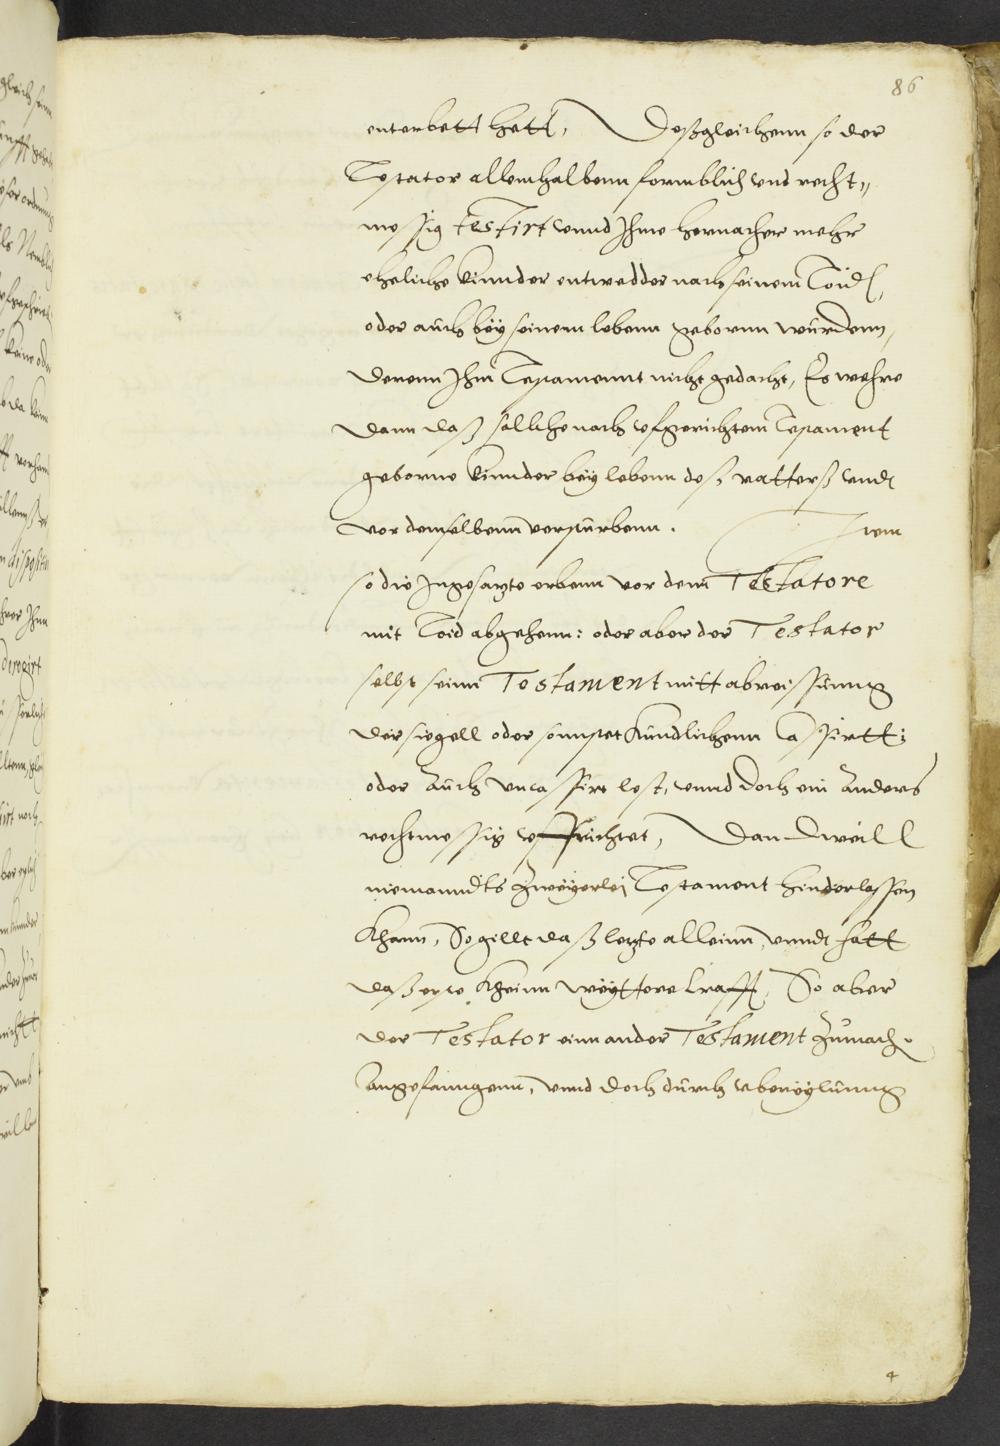 86
enterbett hett, Deßgleichenn so der
Testator allennhalbenn formblich vnd recht„
messig testirt vnnd Ihme hernacher mehr
eheliche kinnder entwedder nach seinem Toid,
oder auch bey seinem lebenn geborenn würdenn,
derenn Ihm Testamennt nicht gedacht, Es wehre
dann daß sollche nach vfgerichtem Testament
geborne kinnder bey lebenn deß vatterß vnd
vor demselbenn verstürbenn. Item
so die Ingesatzte erbenn vor dem Testatore
mit Toid abgehenn: oder aber der Testator
selbst seinn Testament mitt abreissunng
der siegell oder sonnstet kundlichenn cassirtt;
oder auch vncassirt lest, vnnd doch ein anders
rechtmessig vffrichtet, Dan dweill
niemanndts zweyerlei Testament hinderlassen
khann, So gillt daß letzte alleinn, vnnd hatt
daß erste kheinn weyttere krafft, So aber
der Testator einn ander Testament zumach.
angefanngenn, vnnd doch durch vbereylunng
4